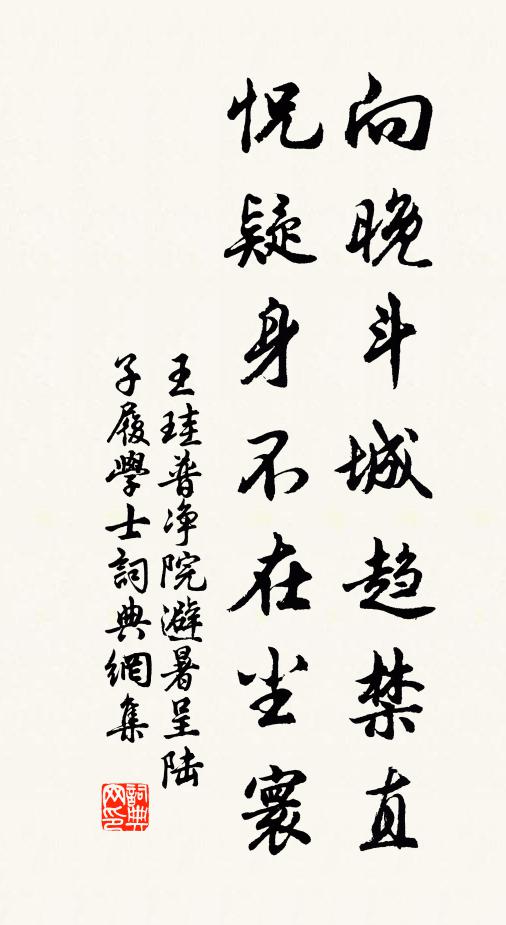 向晚斗城趋禁直
怳疑身不在尘寰
王珪普净院避暑呈陆
子履學士詞典網集
詞典网印